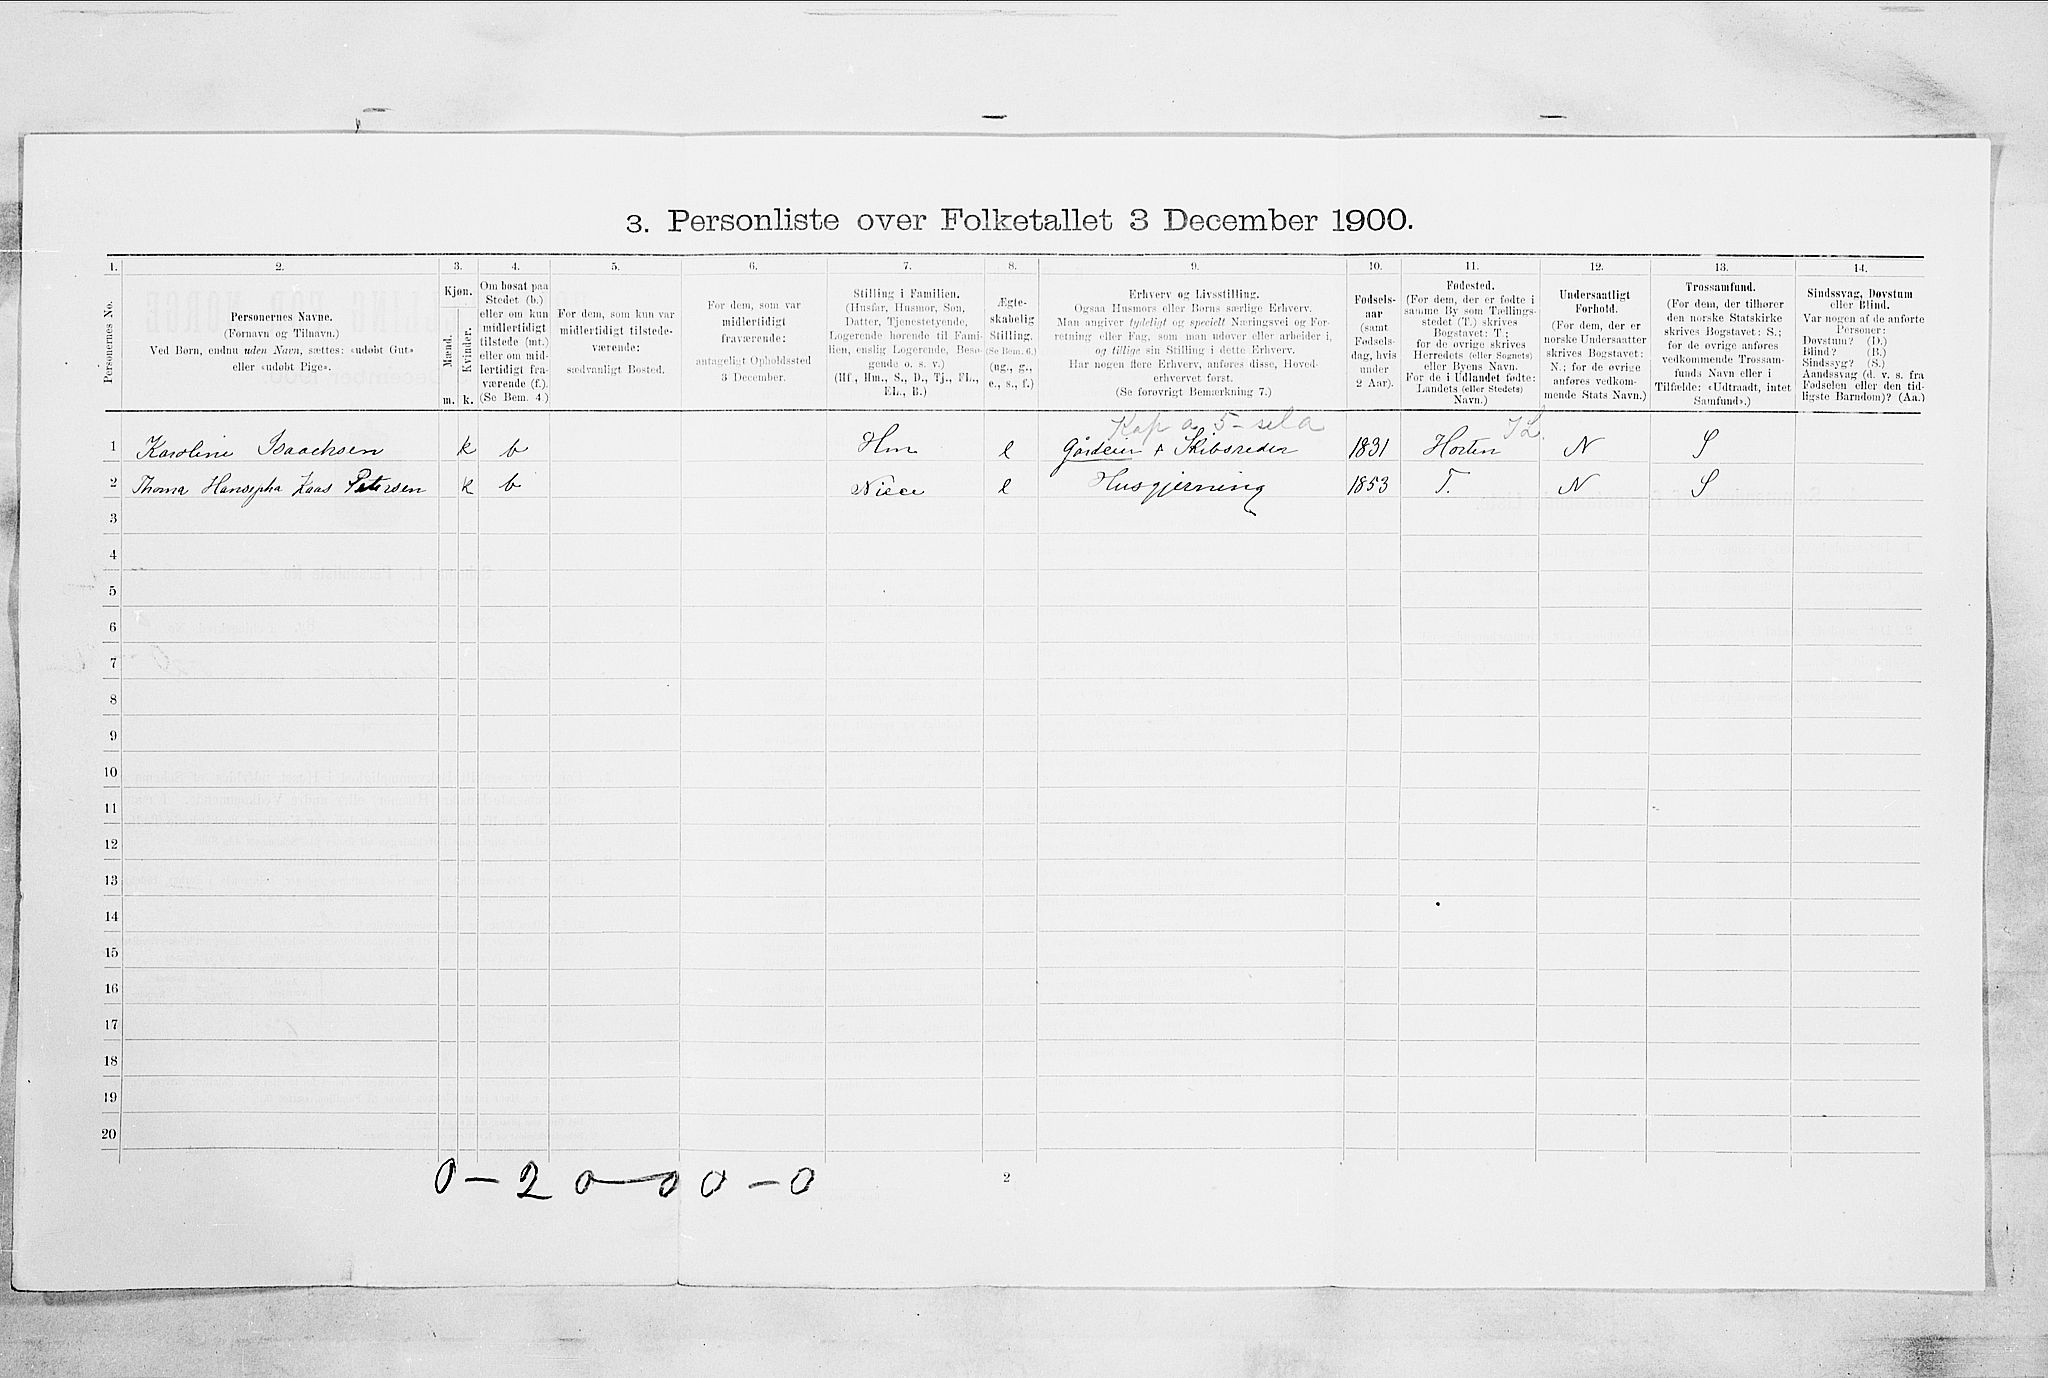 3. Personliste over Folketallet 3 December 1900.
1. 2. 3. 4. 5. 6. 7. 8. 9. 10. 11. 12. 13. 14.
Personernes No.
Personernes Navne.
(Fornavn og Tilnavn.)
Ved Børn, endnu uden Navn, sættes: «udøbt Gut»
eller «udøbt Pige».
Kjøn.
Mænd. Kvinder.
m. k.
Om bosat paa
Stedet (b.)
eller om kun
midlertidigt
tilstede (mt.)
eller om mid-
lertidigt fra-
værende (f.).
(Se Bem. 4.)
For dem, som kun var
midlertidigt tilstede-
værende:
sædvanligt Bosted.
For dem, som var
midlertidigt
fraværende:
antageligt Opholdssted
3 December.
Stilling i Familien.
(Husfar, Husmor, Søn,
Datter, Tjenestetyende,
Logerende hørende til Fami-
lien, enslig Logerende, Besø-
gende o. s. v.)
(Hf., Hm., S., D., Tj., FL.,
EL., B.)
Ægte-
skabelig
Stilling.
(Se Bem. 6.)
(ug., g.,
e., s., f.)
Erhverv og Livsstilling.
Ogsaa Husmors eller Børns særlige Erhverv.
Man angiver tydeligt og specielt Næringsvei og For-
retning eller Fag, som man udøver eller arbeider i,
og tillige sin Stilling i dette Erhverv.
Har nogen flere Erhverv, anføres disse, Hoved-
erhvervet først.
(Se forøvrigt Bemærkning 7.)
Fødsels-
aar
(samt
Fødsels-
dag, hvis
under
2 Aar).
Fødested.
(For dem, der er fødte i
samme By som Tællings-
stedet (T.) skrives
Bogstavet: T.;
for de øvrige skrives
Herredets (eller Sognets)
eller Byens Navn.
For de i Udlandet fødte:
Landets (eller Stedets)
Navn.)
Undersaatligt
Forhold.
(For dem, der er
norske Undersaatter
skrives Bogstavet:
N.; for de øvrige
anføres vedkom-
mende Stats Navn.)
Trossamfund.
(For dem, der tilhører
den norske Statskirke
skrives Bogstavet: S.;
for de øvrige anføres
vedkommende Trossam-
funds Navn eller i
Tilfælde: «Udtraadt, intet
Samfund».)
Sindssvag, Døvstum
eller Blind.
Var nogen af de anførte
Personer:
Døvstum? (D.)
Blind? (B.)
Sindssyg? (S.)
Aandssvag (d. v. s. fra
Fødselen eller den tid-
ligste Barndom)? (Aa.)
Kap a 5
1 Karoline Isaachsen k b Hm e Gårdeier & Skibsreder 1831 Horten N S
2 Thoma Hansepha Kaas Petersen k b Niece e Husgjerning 1853 T. N S
3
4
5
6
7
8
9
10
11
12
13
14
15
16
17
18
19
20
0-2 0-0 0-0
2